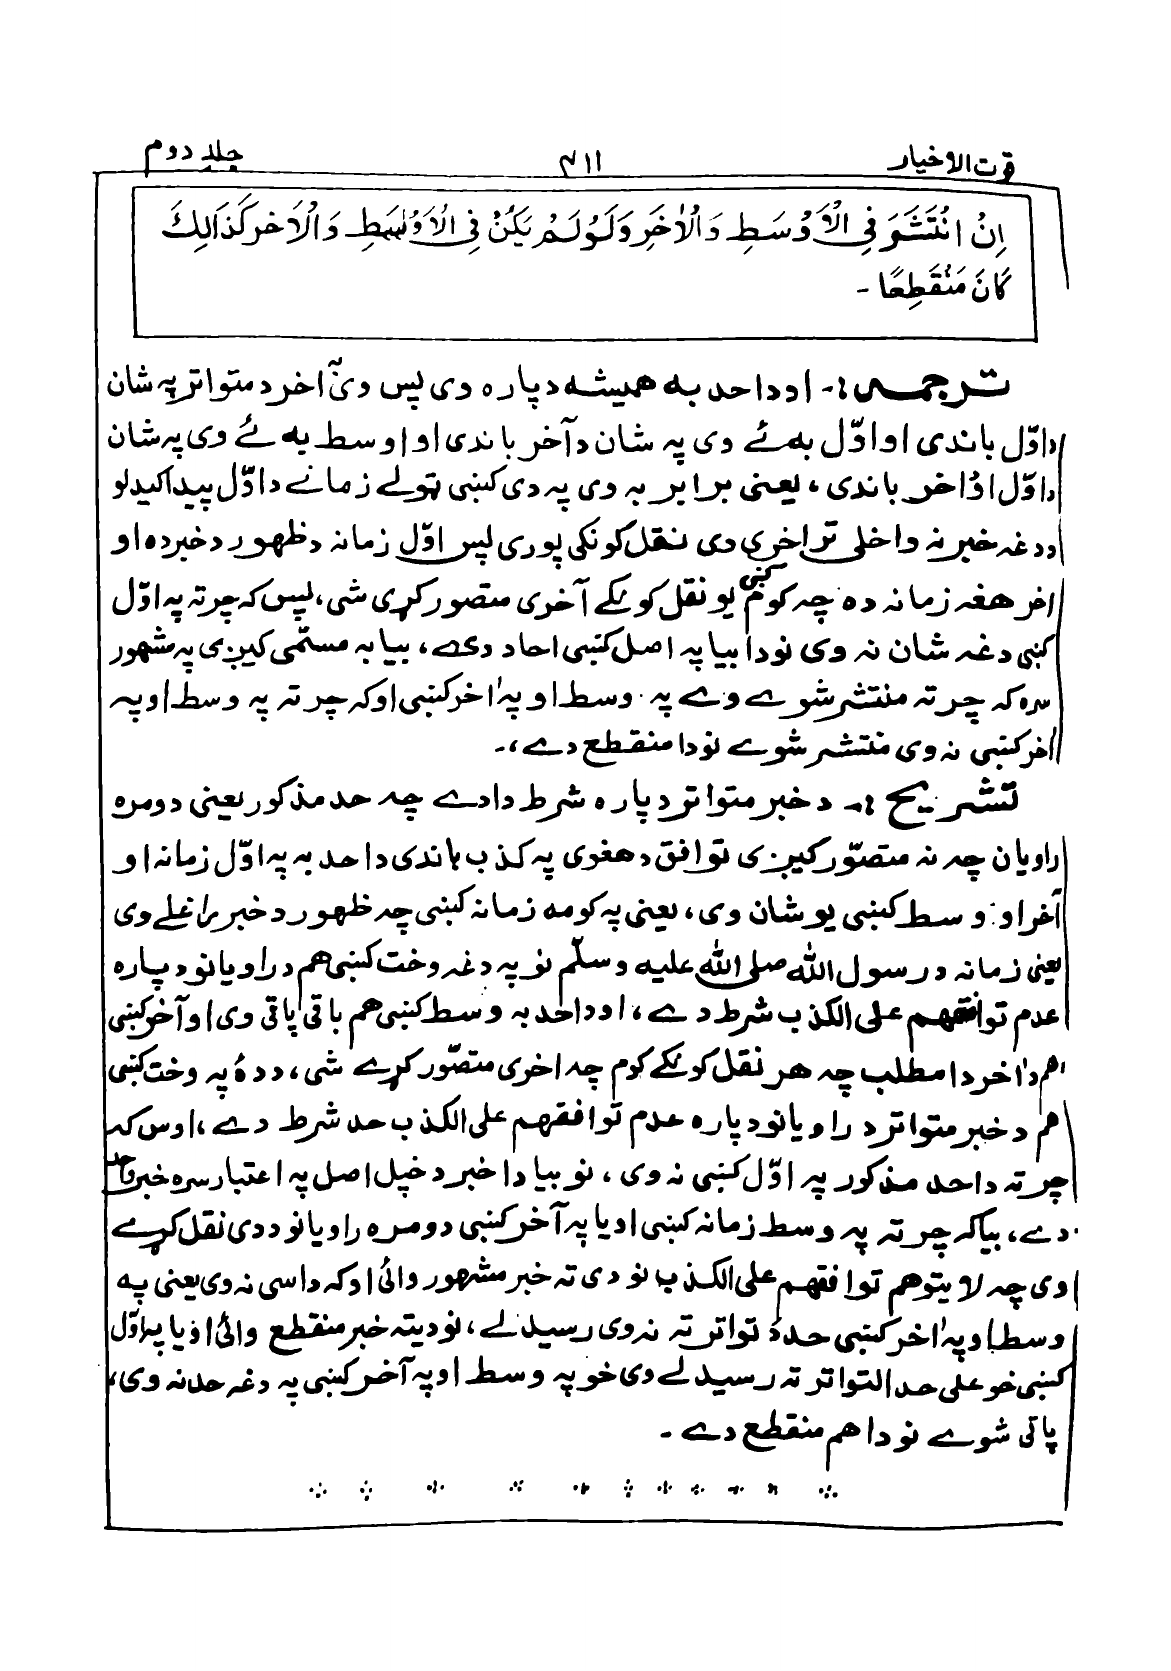 قرت الاخیار ۳۱۱ جلد دوم
اِنْ انْتَشَرَ فِی الْاَوْسَطِ وَالْاٰخَرِ وَلَوْ لَمْ یَکُنْ فِی الْاَوْسَطِ وَالْاٰخر کَذَالِكَ
کَانَ مَنْقَطِعًا -
ترجمہ :- او دا حد به همیشه دپاره وی پس وی آخر د متواتر په شان
داوّل باندی او اوّل به ئے وی په شان د آخر باندی او اوسط به ئے وی په شان
داوّل او داخر باندی ، یعنی برابر به وی په دی کښی ټولے زمانے داوّل پیداکیدلو
د دغه خبر نه واخلی تر اخری دی نقل کونکی پوری پس اوّل زمانه د ظهور د خبر ده او
اخر هغه زمانه ده چه کوم کښی یو نقل کونکے آخری متصور کړی شی، پس که چرته په اوّل
کښی دغه شان نه وی نو دا بیا په اصل کښی احاد دے، بیا به مسمّی کیږی په مشهور
سره که چرته منتشر شوے وے په وسط او په اخر کښی او که چرته په وسط او په
آخر کښی نه وی منتشر شوے نو دا منقطع دے،-
تشریح :- د خبر متواتر دپاره شرط دادے چه حد مذکور یعنی دومره
راویان چه نه متصوّر کیږی توافق د هغوی په کذب باندی دا حد به په اوّل زمانه او
آخر او وسط کښی یو شان وی، یعنی په کومه زمانه کښی چه ظهور د خبر راغلے وی
یعنی زمانه د رسول الله صلی الله علیه وسلّم نو په دغه وخت کښی هم د راویانو دپاره
عدم توافقهم علی الکذب شرط دے، او دا حد به وسط کښی هم باقی پاتی وی او آخر کښی
هم داخر دا مطلب چه هر نقل کونکے کوم چه اخری متصّور کړے شی، د دهٔ په وخت کښی
هم د خبر متواتر د راویانو دپاره عدم توافقهم علی الکذب حد شرط دے، اوس که
چرته دا حد مذکور په اوّل کښی نه وی ، نو بیا دا خبر د خپل اصل په اعتبار سره خبر واحد
دے، بیا که چرته په وسط زمانه کښی او یا په آخر کښی دومره راویانو د دی نقل کړے
وی چه لا یتوهم توافقهم علی الکذب نو دی ته خبر مشهور وائی او که داسی نه وی یعنی په
وسط او په اخر کښی حدد تواتر ته نه وی رسیدلے ، نو دیته خبر منقطع وائی او یا په اوّل
کښی خو علی حد التواتر ته رسیدلے وی خو په وسط او په آخر کښی په دغه حد نه وی،
پاتی شوے نو دا هم منقطع دے -